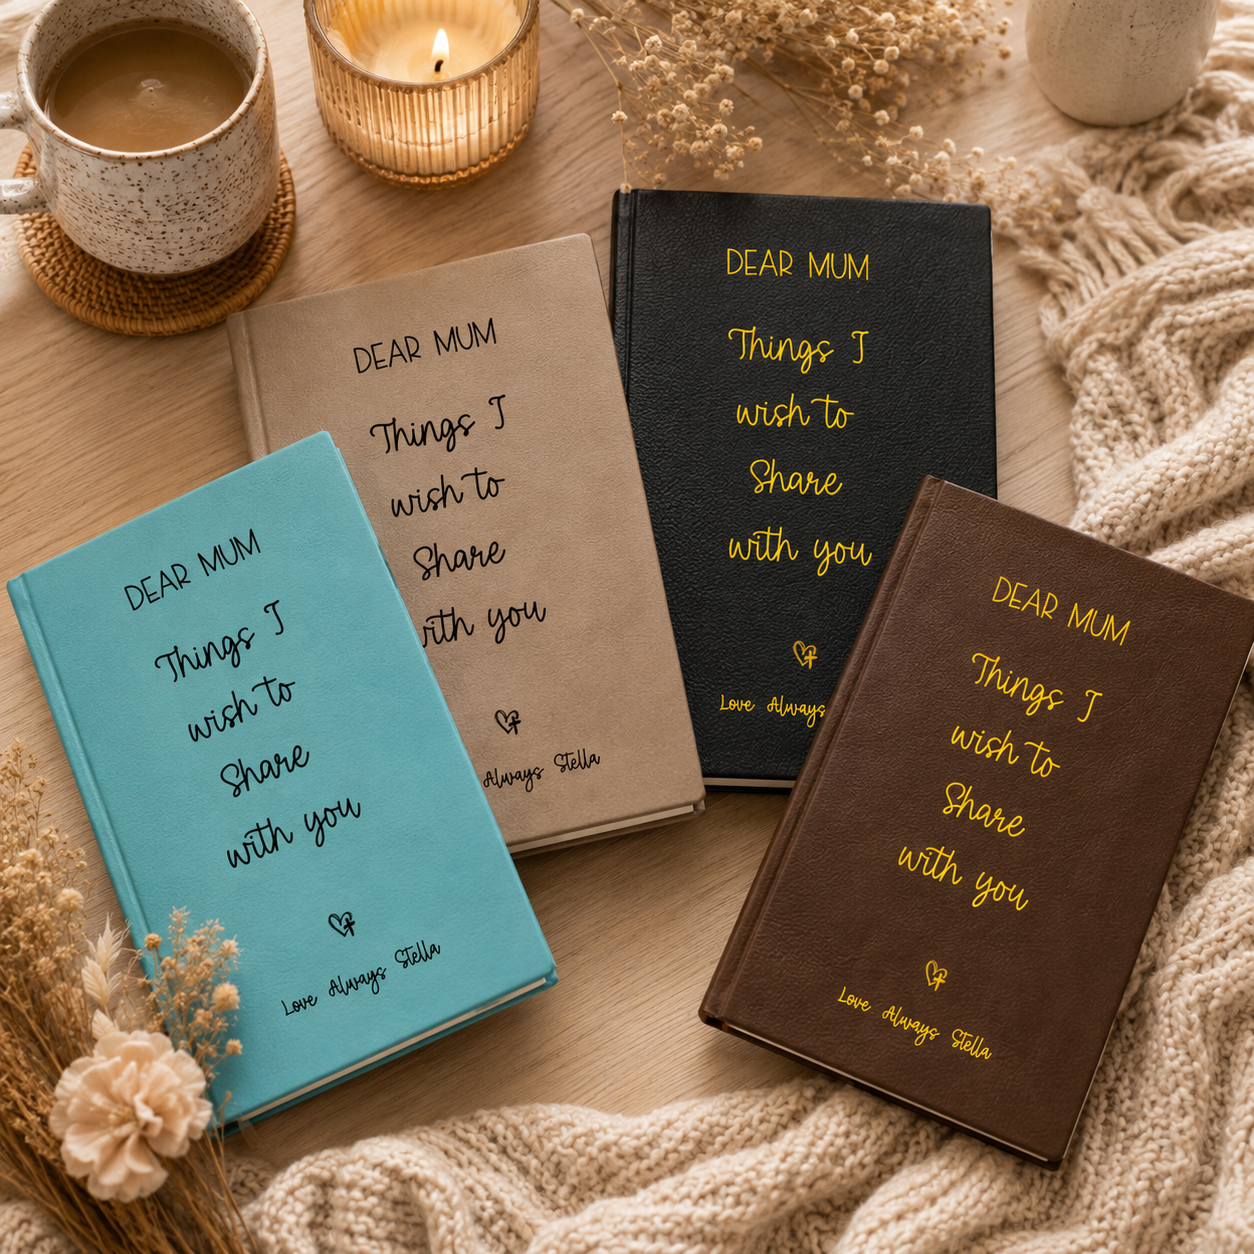 DEAR MUM
Things I
wish to
Share
with you
Love Always Stella
DEAR MUM
Things I
wish to
Share
with you
Always Stella
DEAR MUM
Things I
wish to
Share
with you
Love Always
DEAR MUM
Things I
wish to
Share
with you
Love Always Stella